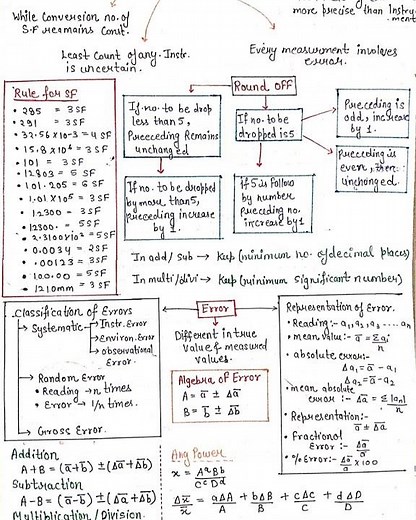 While Conversion no. of
S.F remains Const.
more precise than Instru-
ment
Least Count of any Instr.
is uncertain.
Every measurment involves
error.
Rule for SF
• 285 = 3SF
• 291 = 3SF
• 32.56 x 10-3 = 4 SF
• 15.8 x 10⁴ = 3SF
• 101 = 3SF
• 12803 = 5 SF
• 101.205 = 6 SF
• 1.01 x 10⁵ = 3SF
• 12300 = 3SF
• 12300. = 5SF
• 0.0034 = 2SF
• .00123 = 3SF
• 100.00 = 5SF
• 1210mm = 3SF
Round OFF
If no. to be drop
less than 5,
Preeceding Remains
unchanged
If no. to be
dropped is 5
Preceding is
odd, increase
by 1.
Preceding is
even, then
unchanged.
If no. to be dropped
by more than 5,
preceeding increase
by 1
If 5 is follow
by number
preceding no.
increase by 1
In add/sub → Kup (minimum no. of decimal places)
In multi/divi → Kup (minimum significant number)
Classification of Errors
→ Systematic → Instr. Error
→ Environ. Error
→ observational
Error
→ Random Error
• Reading → n times
• Error → 1/n times
→ Gross Error
Error
Different in true
value & measured
values.
Algebra of Error
A = a̅ ± Δ̅a̅
B = b̅ ± Δ̅b̅
Representation of Error.
• Reading :- a₁, a₂, a₃ .... aₙ
• mean value :- a̅ = Σaᵢ/n
• absolute error :-
Δa₁ = a̅ - a₁
Δa₂ = a̅ - a₂
• mean absolute
error :- Δ̅a̅ = Σ|aₙ|/n
• Representation :-
a̅ ± Δ̅a̅
• Fractional
Error :- Δ̅a̅/a̅
• % Error :- Δ̅a̅/a̅ x 100
Addition
A+B = (a̅+b̅) ± (Δ̅a̅+Δ̅b̅)
Subtraction
A-B = (a̅-b̅) ± (Δ̅a̅+Δ̅b̅)
Multiplication / Division
Any Power
x = AᵃBᵇ/CᶜDᵈ
Δ̅x̅/x̅ = aΔA/A + bΔB/B + cΔC/C + dΔD/D